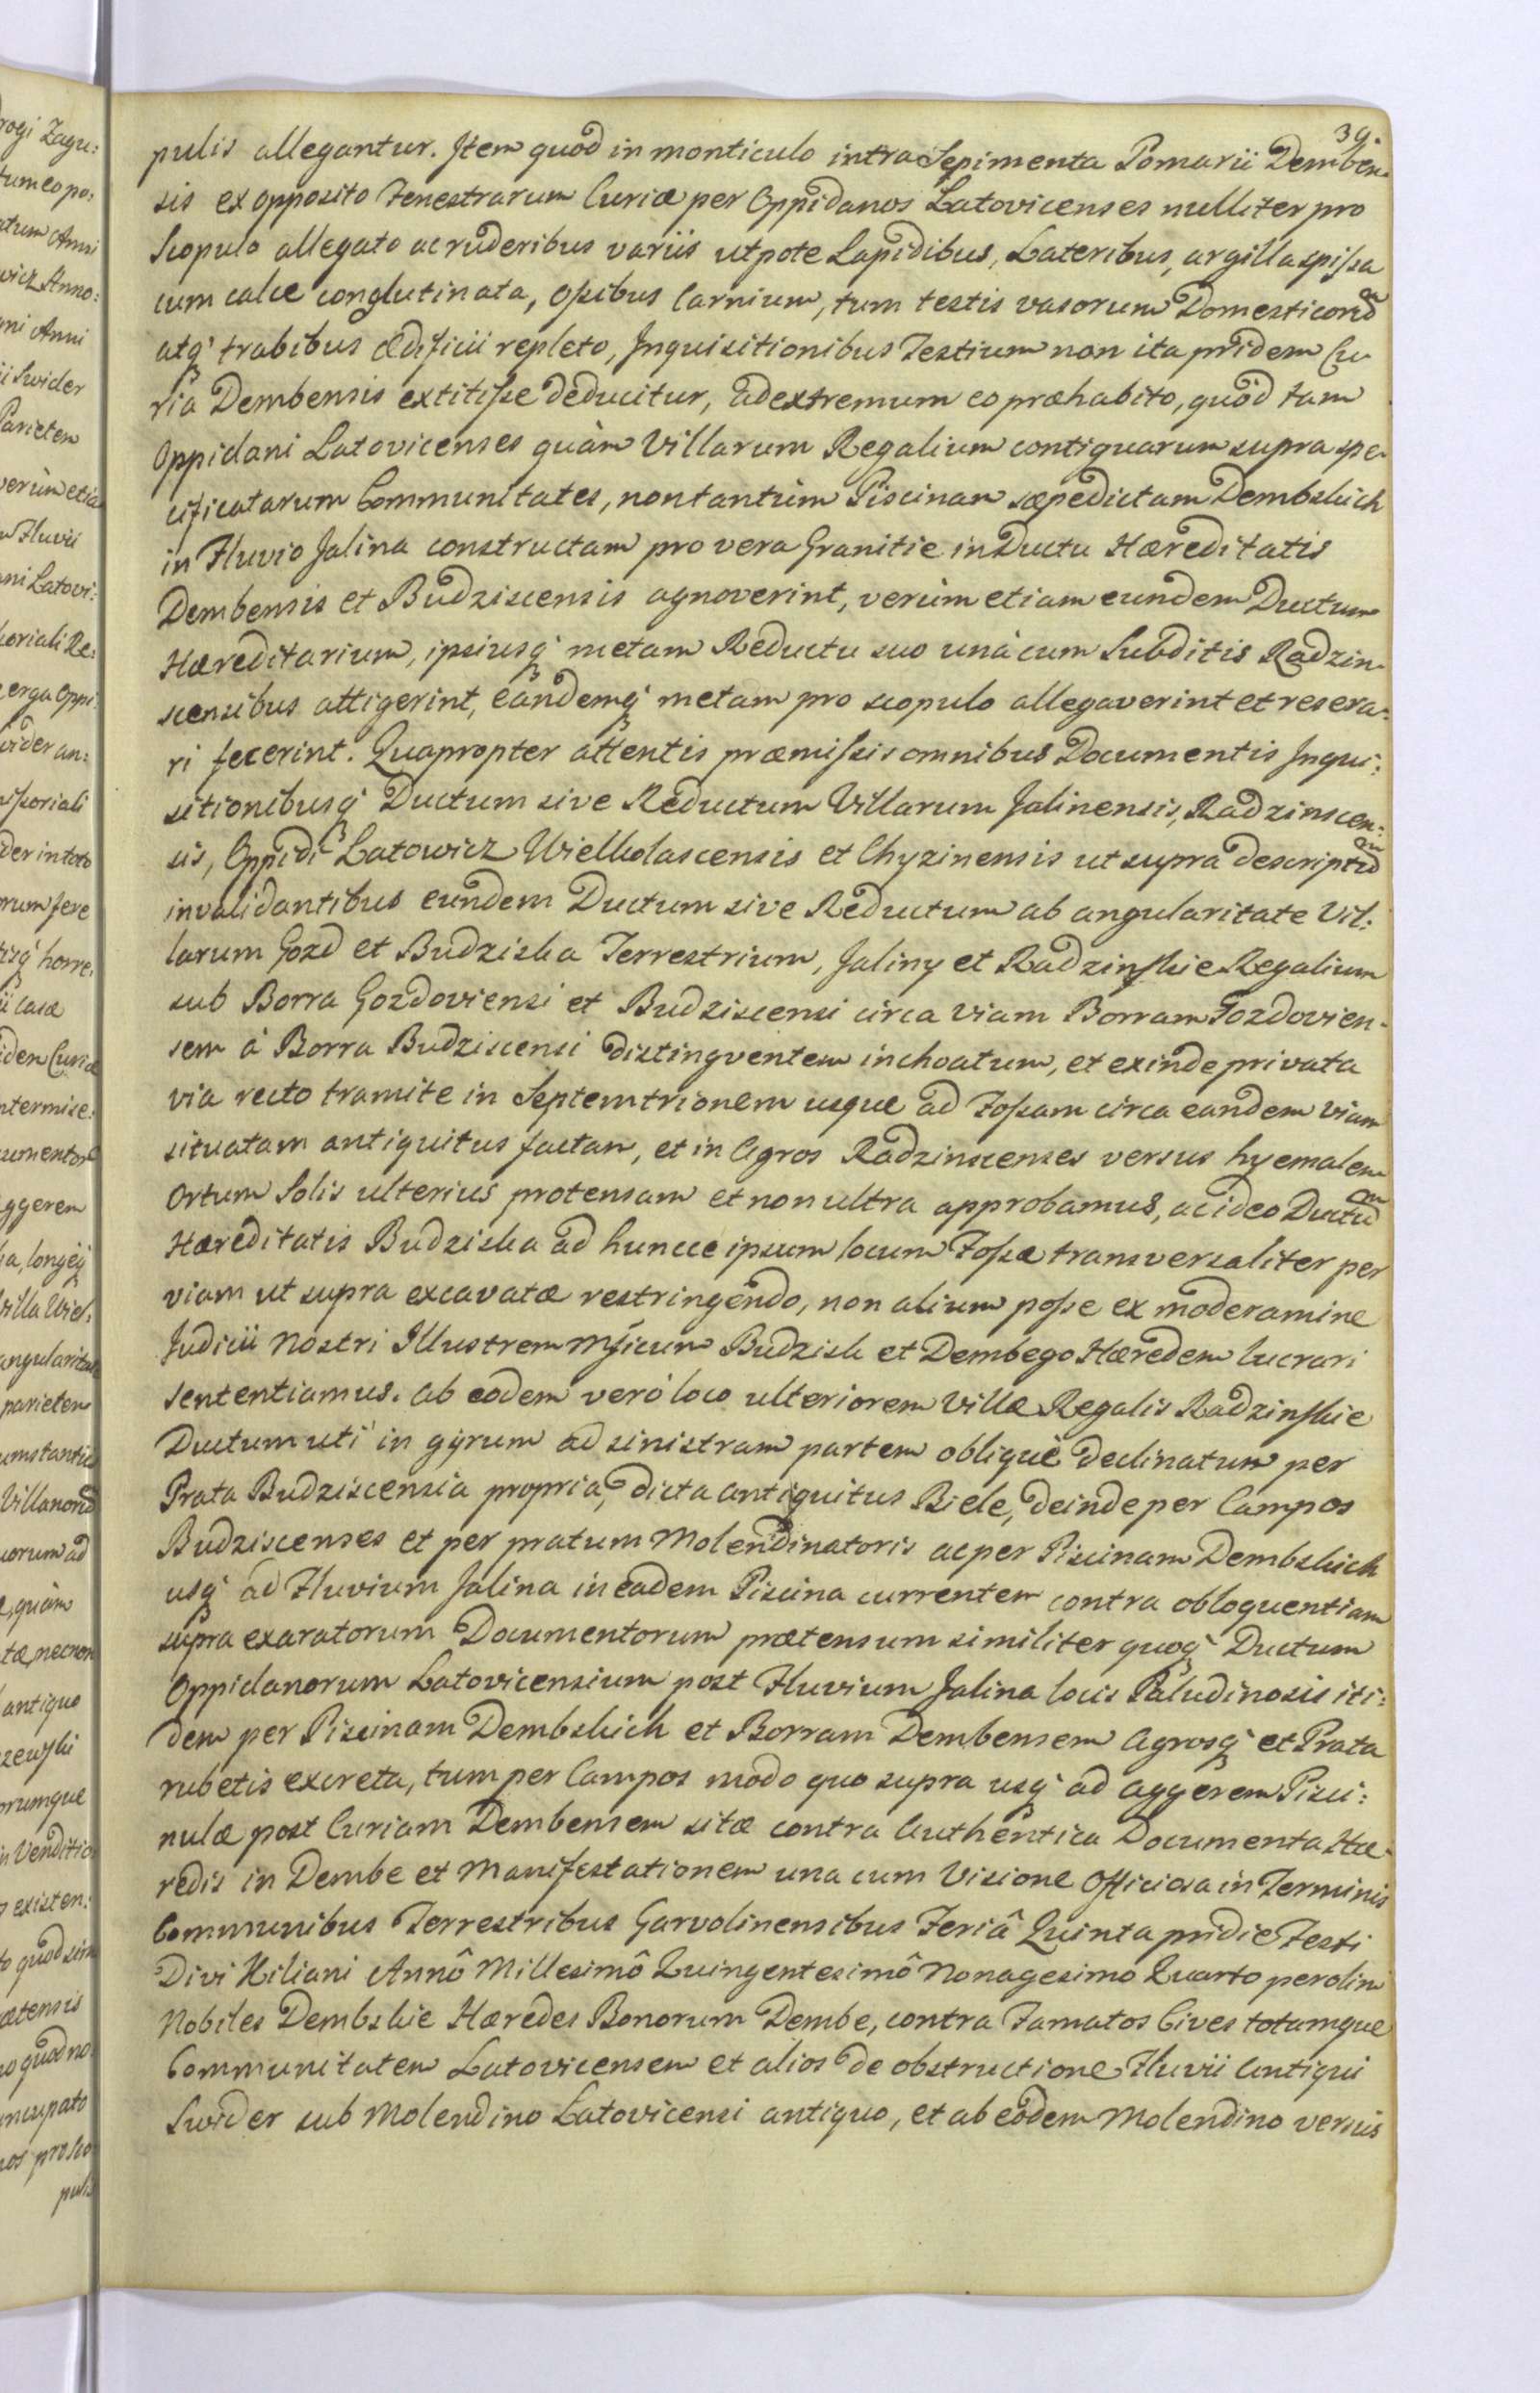 39.
pulis allegantur. Item quod in monticulo intra Sepimenta Pomarii Demben-
sis ex opposito Fenestrarum Curiæ per Oppidanos Latovicenses nulliter pro
Scopulo allegato ac ruderibus variis utpote Lapidibus, Lateribus, argilla spissa
cum calce conglutinata, ossibus Carnium, tum testis vasorum Domesticorũ
atq́ trabibus ædificii repleto, Inquisitionibus Testium non ita pridem Cu-
ria Dembensis extitisse deducitur, ad extremum eo præhabito, quòd tam
Oppidani Latovicenses quàm Villarum Regalium contiguarum supra spe-
cificatarum Communitates, non tantùm Piscinam sæpedictam Dembskich
in Fluvio Jalina constructam pro vera Granitie in Ductu Hæreditatis
Dembensis et Budziscensis agnoverint, verùm etiam eundem Ductum
Hæreditarium, ipsiusq́ metam Reductu suo unà cum Subditis Radzin-
scensibus attigerint, eandemq́ metam pro scopulo allegaverint et resera-
ri fecerint. Quapropter attentis præmissis omnibus Documentis Inqui:
sitionibusq́ Ductum sive Reductum Villarum Jalinensis, Radzinscen:
sis, Oppidi Latowicz Wielkolascensis et Chyzinensis ut supra descriptũ
invalidantibus eundem Ductum sive Reductum ab angularitate Vil:
larum Gozd et Budziska Terrestrium, Jaliny et Radzinskie Regalium
sub Borra Gozdoviensi et Budziscensi circa Viam Borram Gozdovien-
sem à Borra Budziscensi distingventem inchoatum, et exinde privata
via recto tramite in Septemtrionem usque ad Fossam circa eandem Viam
situatam antiquitus factam, et in Agros Radzinscenses versus hyemalem
Ortum Solis ulterius protensam et non ultra approbamus, ac ideo Ductũ
Hæreditatis Budziska ad huncce ipsum locum Fossæ transversaliter per
viam ut supra excavatæ restringendo, non alium posse ex moderamine
Judicii Nostri Illustrem Mgficum Budzisk et Dembego Hæredem lucrari
sententiamus. Ab eodem verò loco ulteriorem Villæ Regalis Radzinskie
Ductum uti in gyrum ad sinistram partem obliquè declinatum per
Prata Budziscensia propria, dicta antiquitus Biele, deinde per Campos
Budziscenses et per pratum Molendinatoris ac per Piscinam Dembskich
usq́ ad Fluvium Jalina in eadem Piscina currentem contra obloquentiam
supra exaratorum Documentorum prætensum similiter quoq́ Ductum
Oppidanorum Latovicensium post Fluvium Jalina locis Paludinosis iti:
dem per Piscinam Dembskich et Borram Dembensem Agrosq́ et Prata
rubetis excreta, tum per Campos modo quo supra usq́ ad aggerem Pisci:
nulæ post Curiam Dembensem sitæ contra Authentica Documenta Hæ-
redis in Dembe et Manifestationem una cum Visione Officiosa in Terminis
Communibus Terrestribus Garvolinensibus Feriâ Quinta pridie Festi
Divi Kiliani Annô Millesimô Quingentesimô Nonagesimo Quarto per olim
Nobiles Dembskie Hæredes Bonorum Dembe, contra Famatos Cives totamque
Communitatem Latovicensem et alios de obstructione Fluvii Antiqui
Swider sub Molendino Latovicensi antiquo, et ab eodem Molendino versus